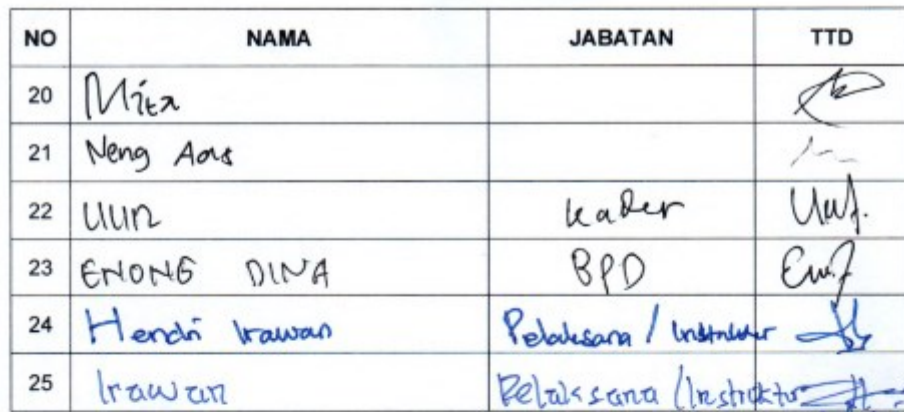 NO NAMA JABATAN TTD
20 Mita
21 Neng Aas
22 UUN kader
23 ENONG DINA BPD
24 Hendri Irawan Pelaksana / Instruktur
25 Irawan Pelaksana / Instruktur